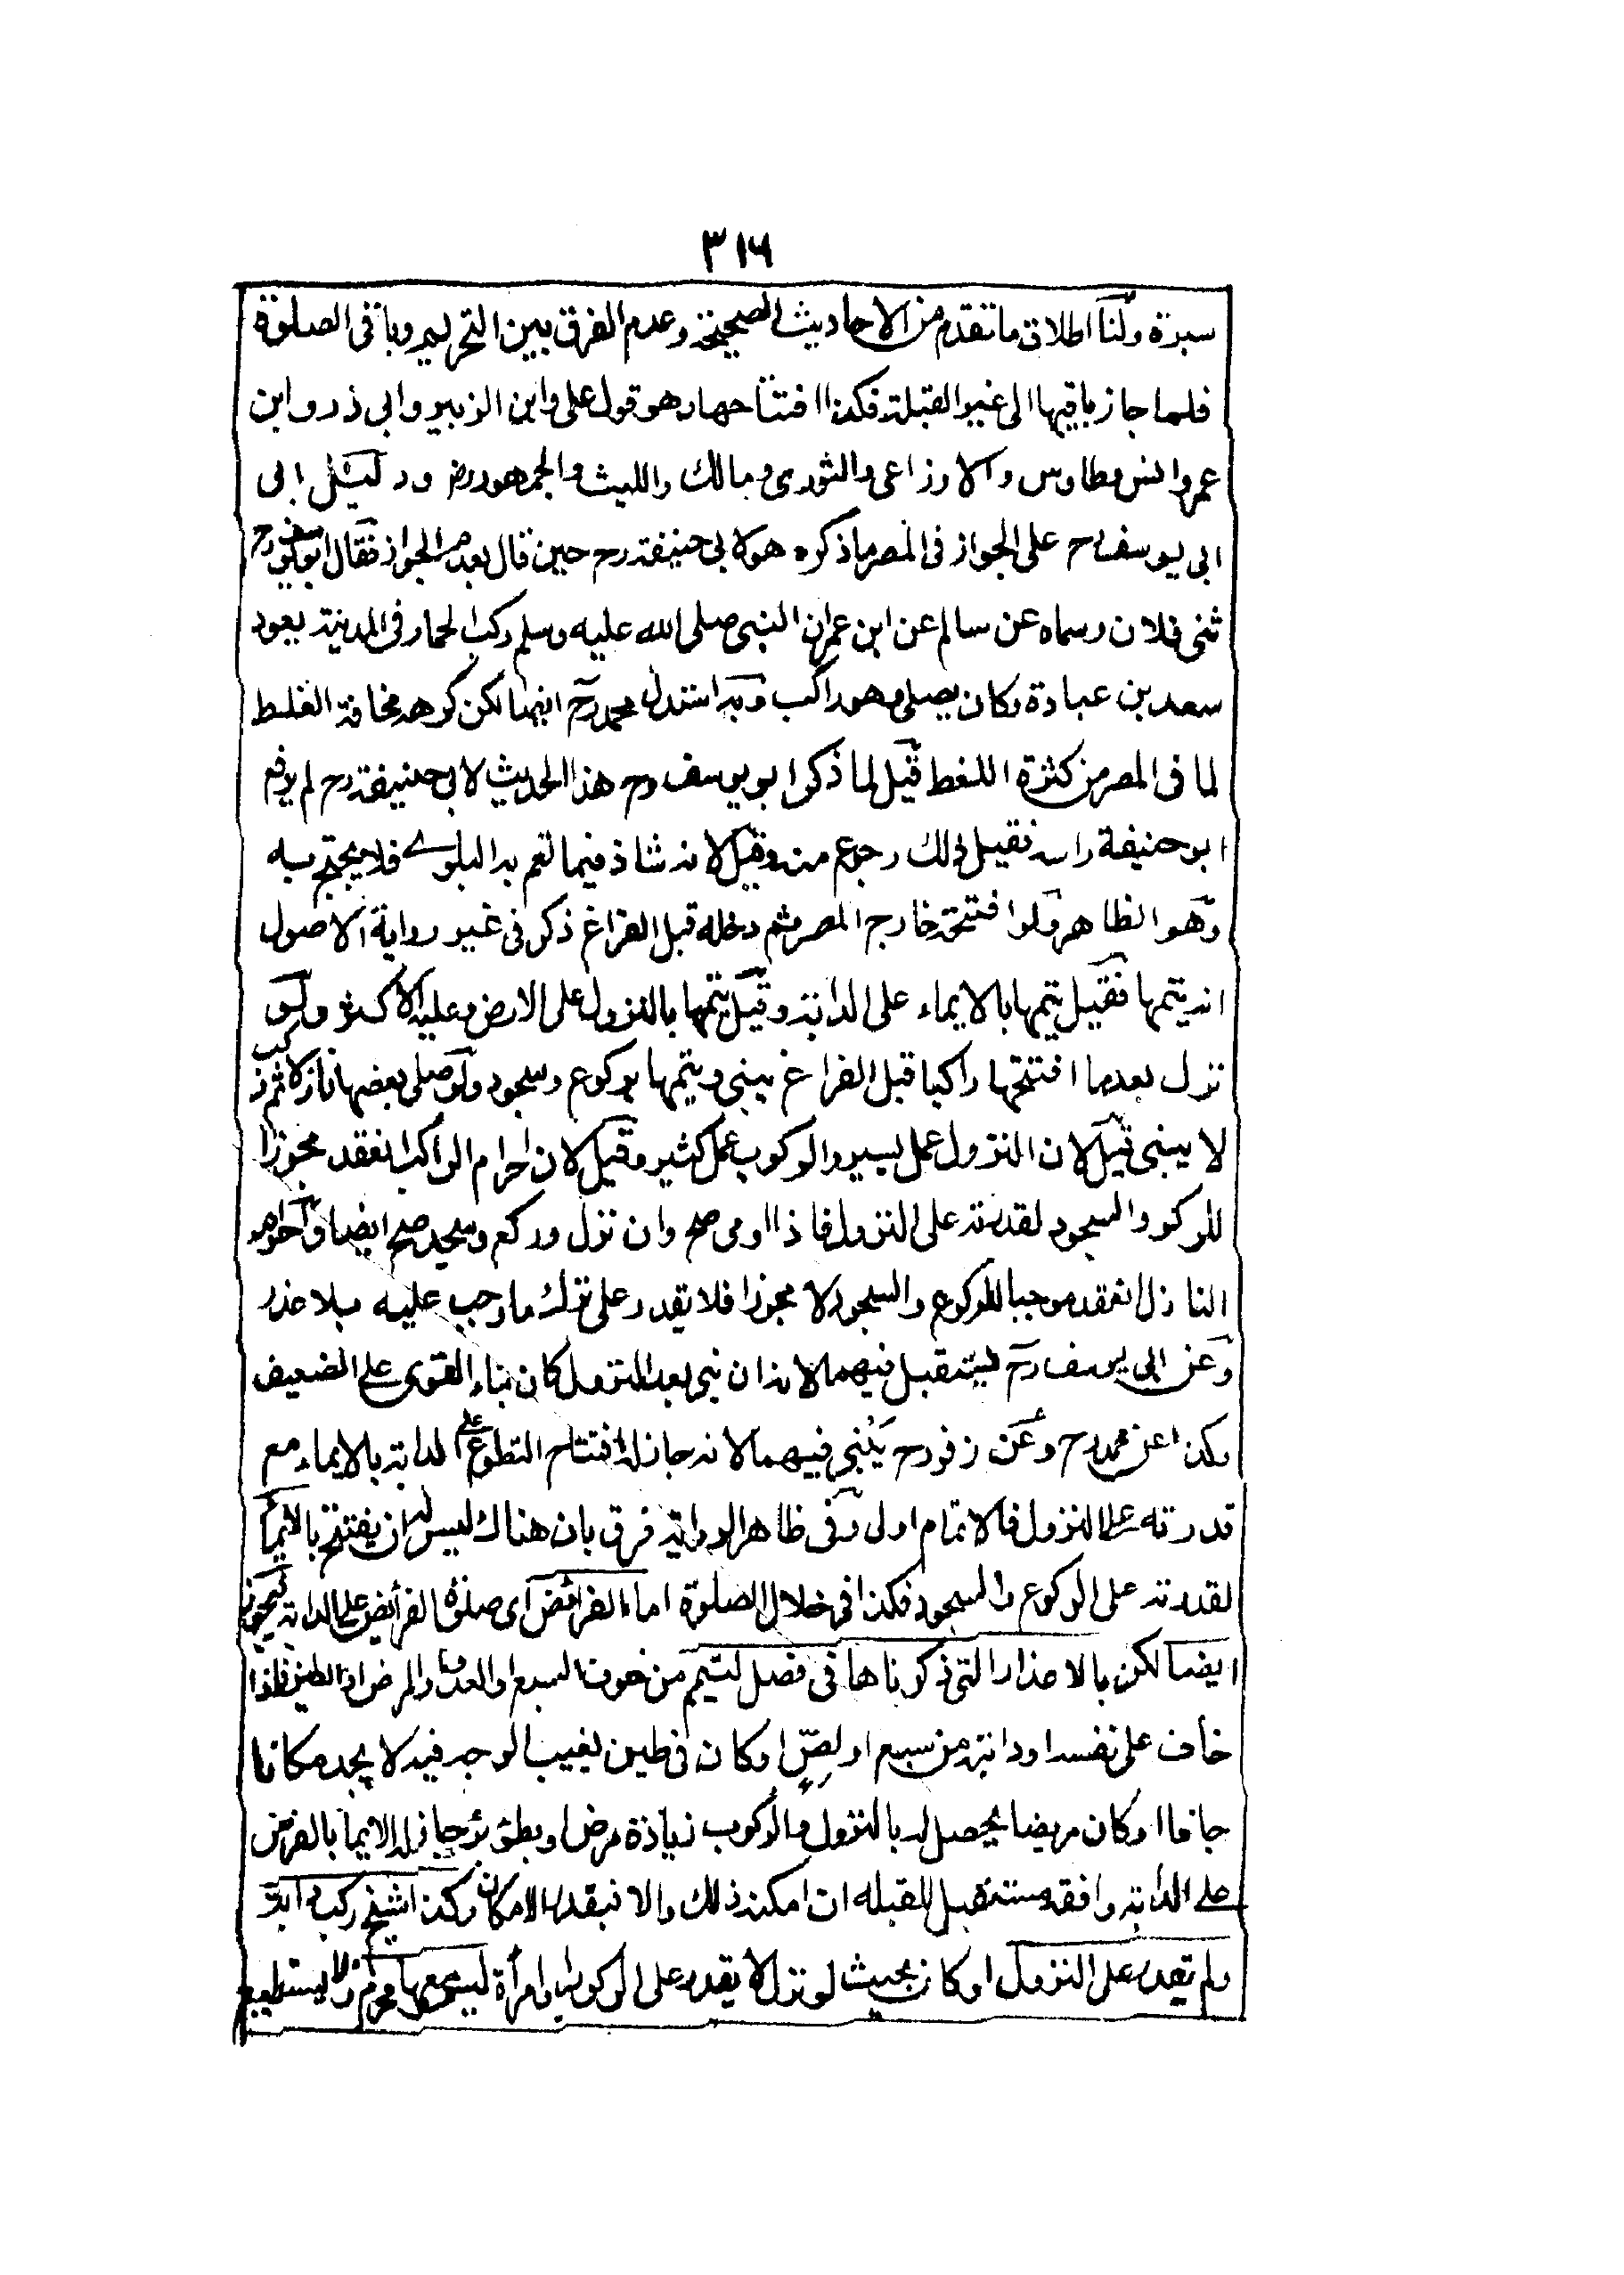 ٣١٦
سبرة ولنا اطلاق ما تقدم من الاحاديث الصحيحة وعدم الفرق بين التحريم وباقى الصلوة
فلما جاز باقيها الى غير القبلة فكذا افتتاحها وهو قول على وابن الزبير وابى ذر وابن
عمر وانس وطاوس والاوزاعى والثورى ومالك والليث والجمهور رض ودليل ابى
ابى يوسف رح على الجواز فى المصر ما ذكره هو لابى حنيفة رح حين قال بعدم الجواز فقال ابو يوسف رح
ثنى فلان وسماه عن سالم عن ابن عمر ان النبى صلى الله عليه وسلم ركب الحمار فى المدينة يعود
سعد بن عبادة وكان يصلى وهو راكب وبه استدل محمد رح ايضا لكن كرهه مخافة الغلط
لما فى المصر من كثرة اللغط قيل لما ذكر ابو يوسف رح هذا الحديث لابى حنيفة رح لم يرفع
ابو حنيفة راسه فقيل ذلك رجوع منه وقيل لانه شاذ فيما تعم به البلوى فلا يحتج به
وهو الظاهر ولو افتتحه خارج المصر ثم دخله قبل الفراغ ذكر فى غير رواية الاصول
انه يتمها فقيل يتمها بالايماء على الدابة وقيل يتمها بالنزول على الارض وعليه الاكثر ولو
نزل بعد ما افتتحها راكبا قبل الفراغ يبنى ويتمها بركوع وسجود ولو صلى بعضها نازلا ثم ركب
لا يبنى قيل لان النزول عمل يسير والركوب عمل كثير وقيل لان احرام الراكب انعقد مجوزا
للركوع والسجود لقدرته على النزول فاذا اومى صح وان نزل وركع وسجد صح ايضا واحرام
النازل انعقد موجبا للركوع والسجود لا مجوزا فلا يقدر على ترك ما وجب عليه بلا عذر
وعن ابى يوسف رح يستقبل فيهما لانه ان بنى بعد النزول كان بناء القوى على الضعيف
وكذا عن محمد رح وعن زفر رح يبنى فيهما لانه جاز له افتتاح التطوع على الدابة بالايماء مع
قدرته على النزول فالاتمام اولى وفى ظاهر الرواية فرق بان هناك ليس له ان يفتتح بالايماء
لقدرته على الركوع والسجود فكذا فى خلال الصلوة اما الفرائض اى صلوة الفرائض على الدابة يجوز
ايضا لكن بالاعذار التى ذكرناها فى فصل التيمم من خوف السبع او العدو او المرض او الطين فاذا
خاف على نفسه او دابته من سبع او لص او كان فى طين يغيب الوجه فيه لا يجد مكانا
جافا او كان مريضا يحصل له بالنزول والركوب زيادة مرض او بطؤ برؤ جاز له الايماء بالفرض
على الدابة واقفة مستقبل القبلة ان امكنه ذلك والا فبقدر الامكان وكذا شيخ ركب دابة
ولم يقدر على النزول او كان بحيث لو نزل لا يقدر على الركوب او امرأة ليس معها محرم ولا يستطيع